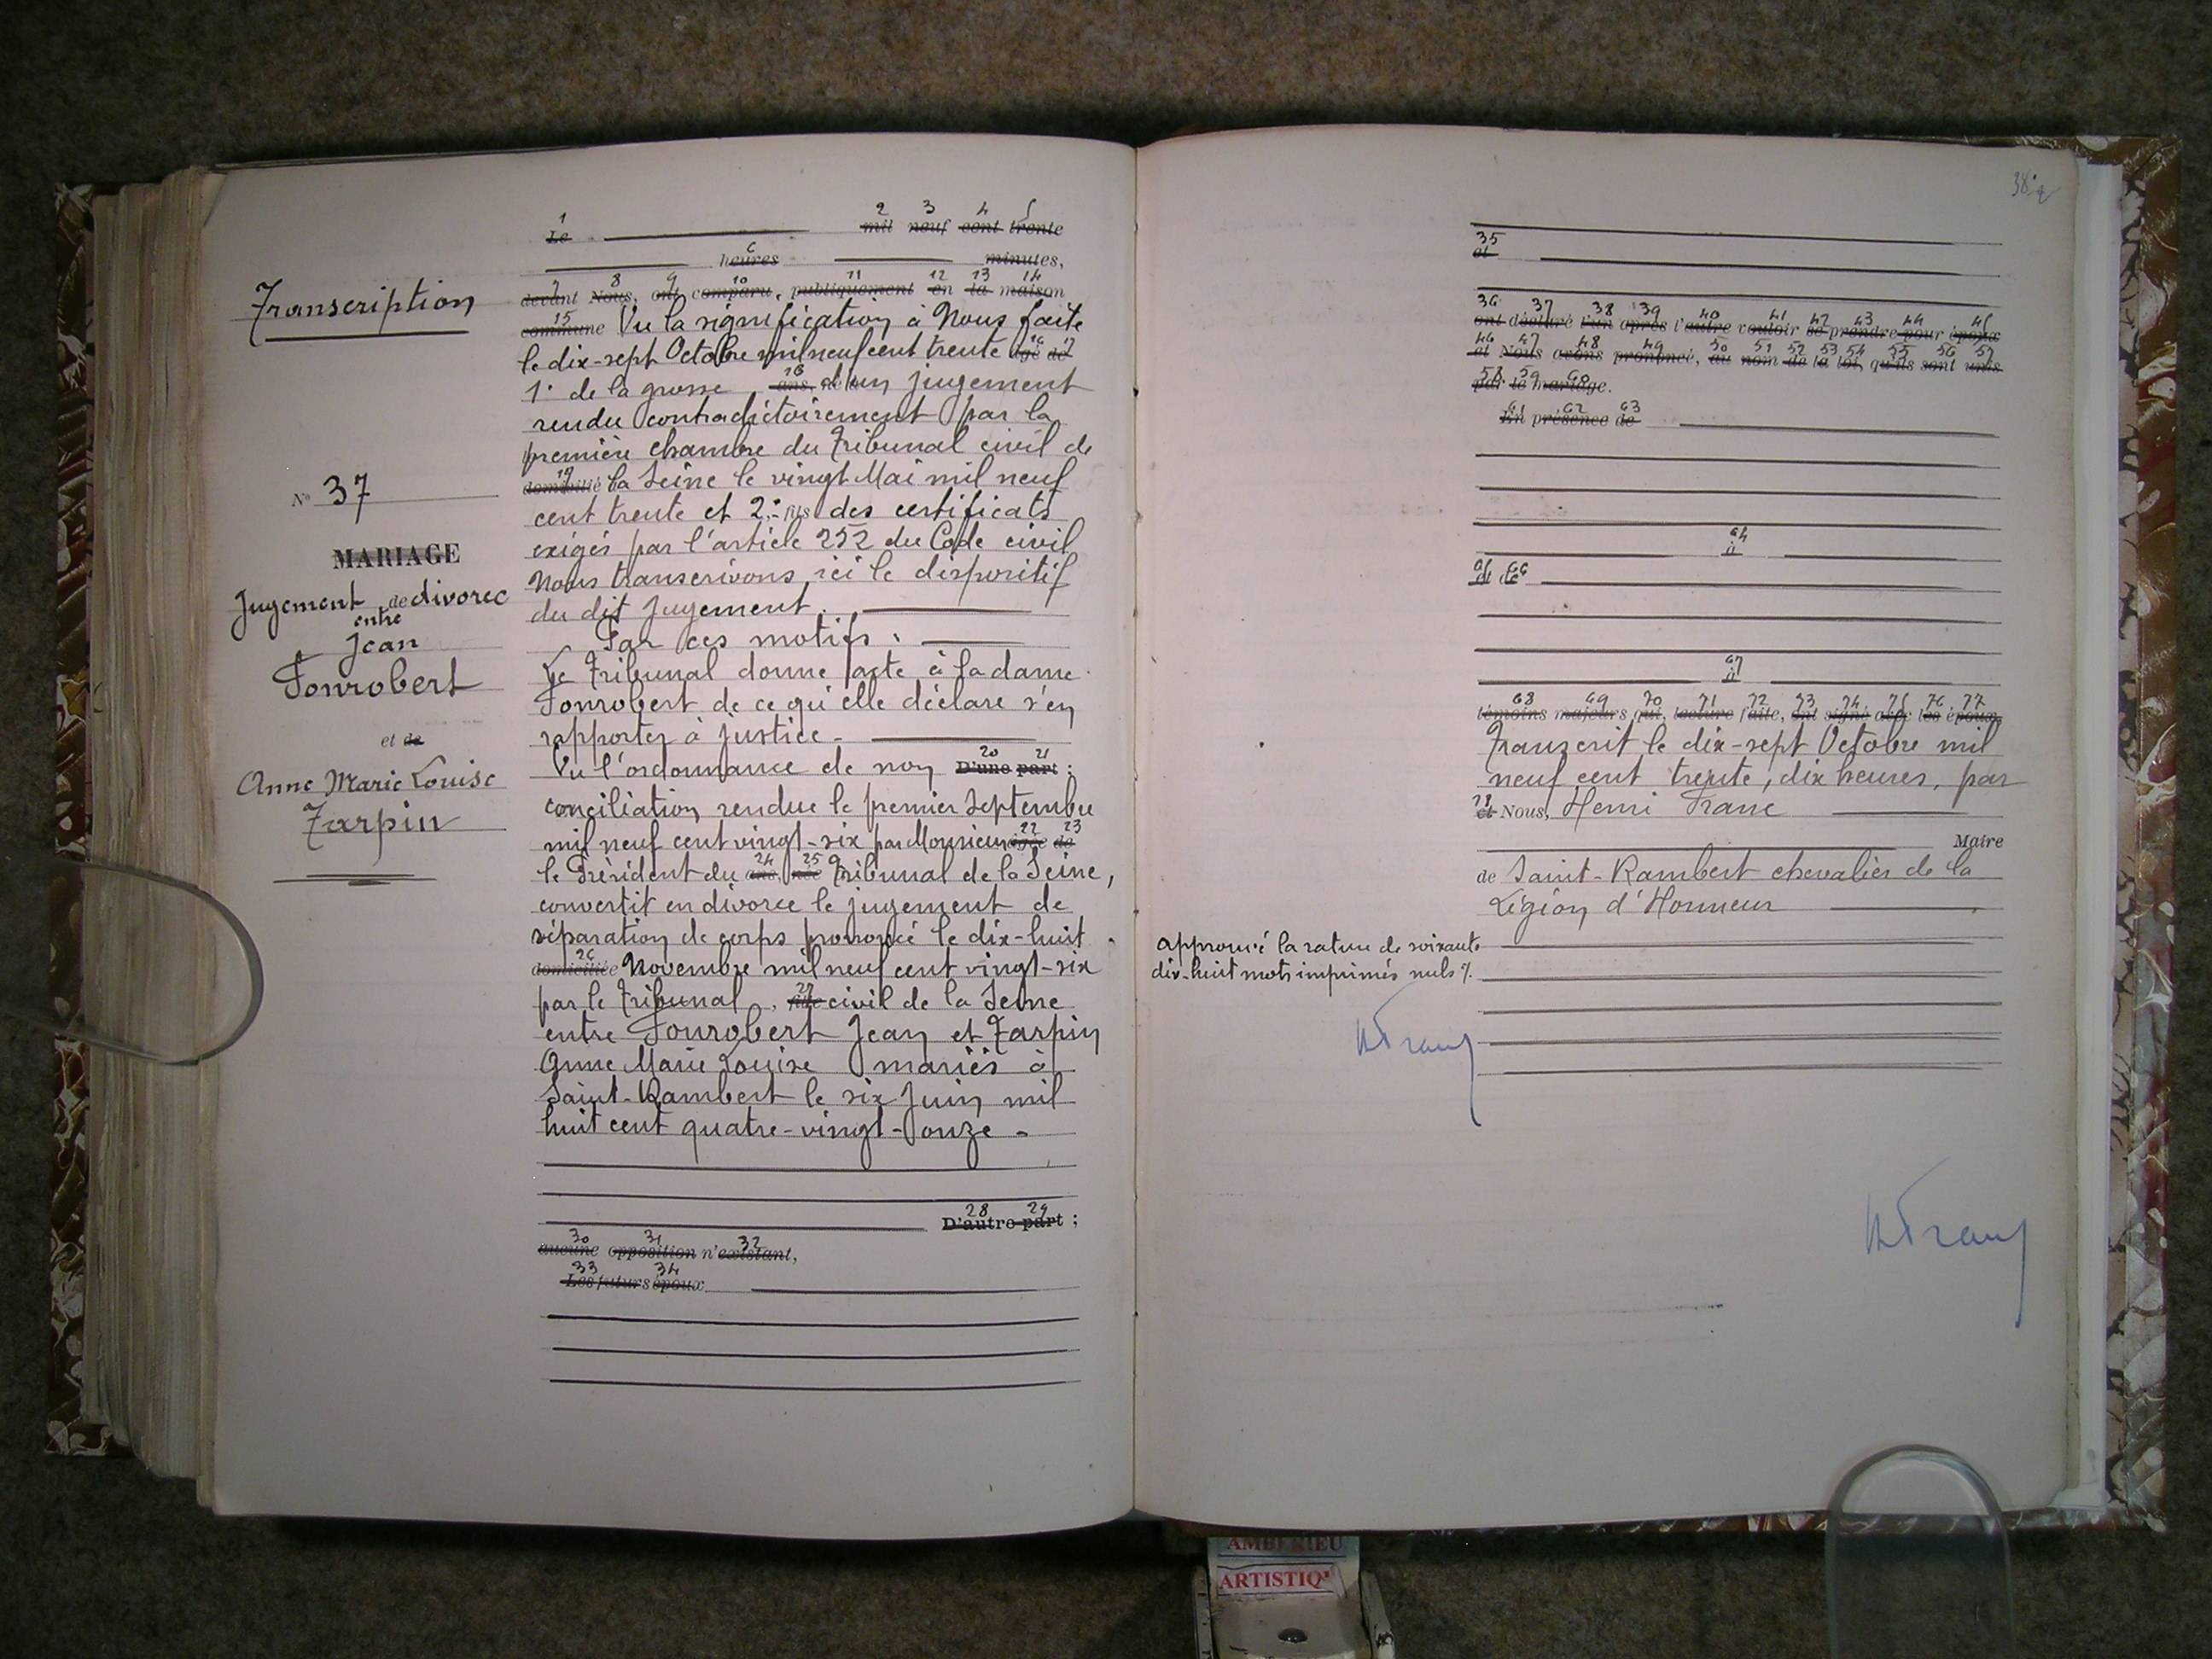 Transcription
N° 37
MARIAGE
Jugement de divorce
entre
Jean
Fonrobert
et de
Anne Marie Louise
Tarpin
1 2 3 4 5
Le mil neuf cent trente
6
heures minutes,
7 8 9 10 11 12 13 14
devant Nous, ont comparu, publiquement en la maison
15
commune Vu la signification à Nous faite
16 17
le dix-sept Octobre mil neuf cent trente âgé de
18
1° de la grosse ans, d'un jugement
rendu contradictoirement par la
première chambre du Tribunal civil de
19
domicilié la Seine le vingt Mai mil neuf
cent trente et 2° fils des certificats
exigés par l'article 252 du Code civil
Nous transcrivons ici le dispositif
du dit jugement.
Par ces motifs :
Le Tribunal donne acte à la dame
Fonrobert de ce qu'elle déclare s'en
rapporter à justice -
20 21
Vu l'ordonnance de non D'une part ;
conciliation rendue le premier Septembre
22 23
mil neuf cent vingt-six par Monsieur âgée de
24 25
le Président du ans, née Tribunal de la Seine,
convertit en divorce le jugement de
séparation de corps prononcé le dix-huit
26
domiciliée Novembre mil neuf cent vingt-six
27
par le Tribunal, fille civil de la Seine
entre Fonrobert Jean et Tarpin
Anne Marie Louise mariés à
Saint-Rambert le six Juin mil
huit cent quatre-vingt-onze -
28 29
D'autre part ;
30 31 32
aucune opposition n'existant,
33 34
Les futurs époux
38
35
et
36 37 38 39 40 41 42 43 44 45
ont déclaré l'un après l'autre vouloir se prendre pour époux
46 47 48 49 50 51 52 53 54 55 56 57
et Nous avons prononcé, au nom de la loi, qu'ils sont unis
58 59 60
par le mariage.
61 62 63
En présence de
64
à
65 66
et de
67
à
68 69 70 71 72 73 74 75 76 77
témoins majeurs qui, lecture faite, ont signé avec les époux
Transcrit le dix-sept Octobre mil
neuf cent trente, dix heures, par
78
et Nous, Henri Franc
Maire
de Saint-Rambert chevalier de la
Légion d'Honneur
approuvé la rature de soixante
dix-huit mots imprimés nuls
HFranc
HFranc
AMBERIEU
ARTISTIQ